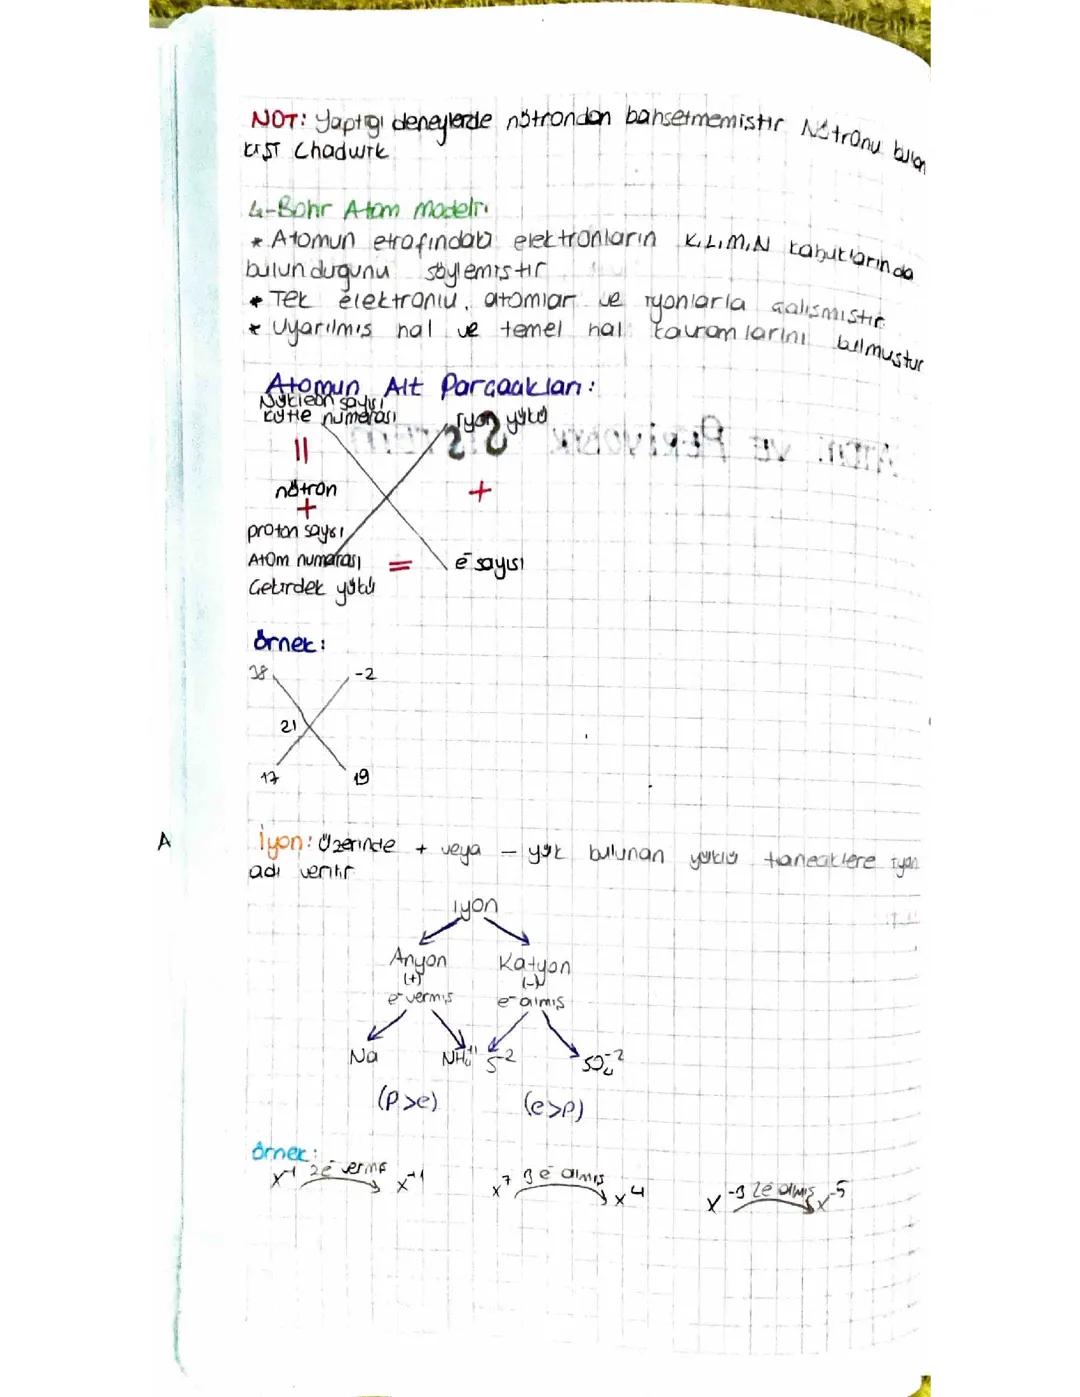 NOT: Yaptıgı deneylerde nötrondan bahsetmemistir Nötronu bulan
kişi Chadwik
4-Bohr Atom Modeli
* Atomun etrafındaki elektronların K,L,M,N kabuklarında
bulundugunu söylemistir
* Tek elektronlu, atomlar ve iyonlarla calismistir
* Uyarılmıs hal ve temel hal kavramlarını bulmustur
Atomun Alt Parcacıkları:
Nükleon sayısı
kütle numarası iyon yükü
=
nötron +
+
proton sayısı
Atom numarası = e⁻ sayısı
Cekirdek yükü
Örnek:
38 -2
21
17 19
İyon: Üzerinde + veya - yük bulunan yüklü taneciklere iyon
adı verilir
iyon
Anyon Katyon
(+) (-)
e⁻ vermis e⁻ almıs
Na NH₄⁺¹ S⁻² SO₄⁻²
(p>e) (e>p)
Örnek:
x⁻¹ 2e⁻ vermis x⁺¹ x⁷ 3e⁻ almıs x⁴ x⁻³ 2e⁻ almıs x⁻⁵
A
ATOM VE PERİYODİK SİSTEM